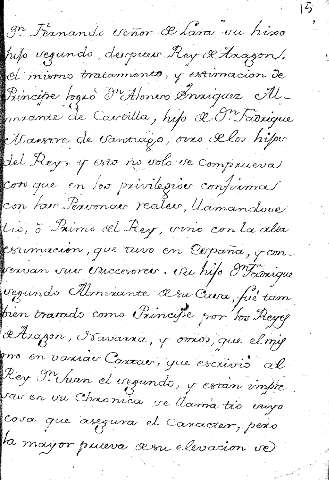 15
Dn. Fernando Señor de Lara su hixo
hijo segundo, despues Rey de Aragon.
el mismo tratamento, y estimacion de
Principe logró Dn. Alonso Enriquez Al-
mirante de Castilla, hijo de Dn. Fadrique
Maestre de Santiago, otro de los hijos
del Rey, y esto no solo se comprueva
con que en los privilegios confirma
con las Personas reales, llamandose
tio, ò Primo del Rey, sino con la alta
estimacion, que tuvo en España, y con-
servan sus succesores. Su hijo Dn. Fadrique
segundo Almirante de su Casa, fue tam
bien tratado como Principe por los Reyes
de Aragon, Navarra, y otros, que el mis
mo en varias Cartas, que escrivió al
Rey Dn. Juan el segundo, y están impre
sas en su Chronica se llama tio suyo
cosa que asegura el caracter, pero
la mayor prueva de su elevacion se